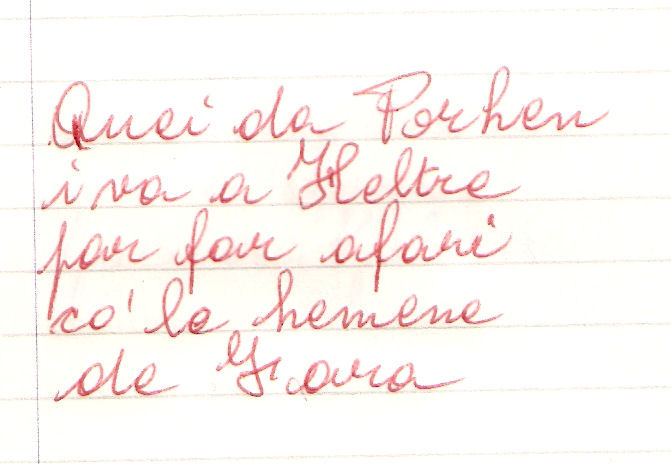 Quei da Porhen
i va a Heltre
par far afari
co' le hemene
de Hara